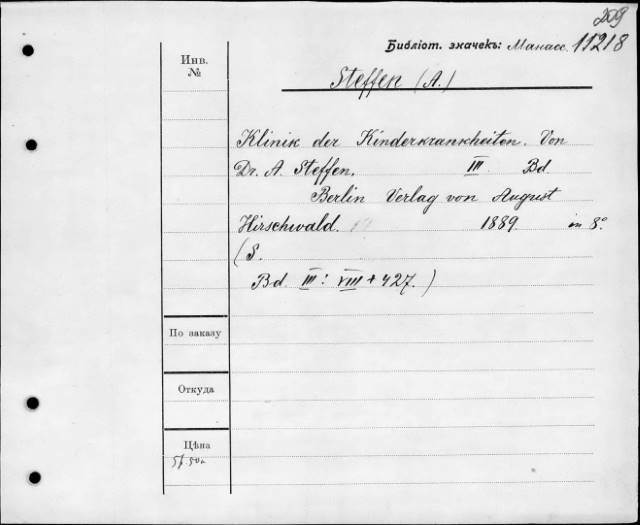 209
Библіот. значекъ: Манасс. 11218
Инв.
№
Steffen (A.)
Klinik der Kinderkrankheiten. Von
Dr. A. Steffen. III. Bd.
Berlin Verlag von August
Hirschwald. 1889. in 8°
(S.
Bd. III: VIII + 427.)
По заказу
Откуда
Цѣна